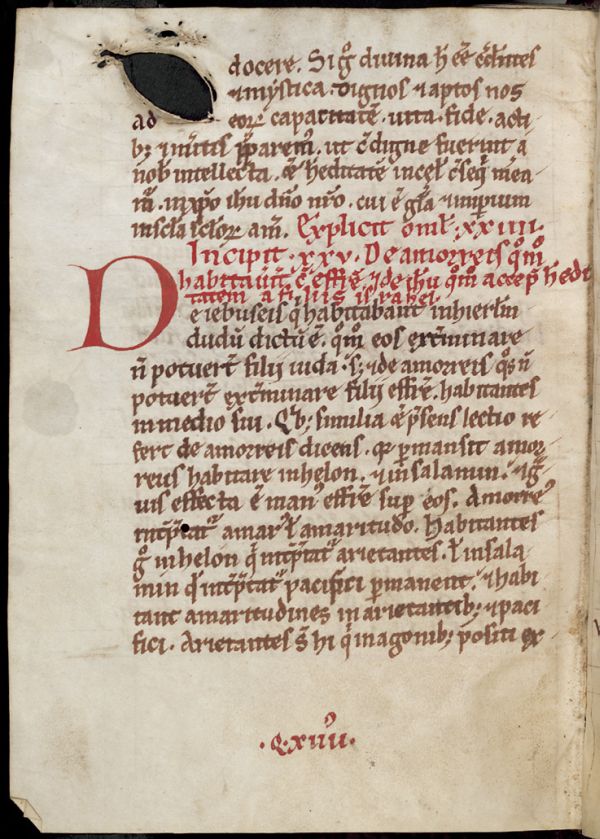 docere. Sig̊ diuina h̄ eē c̄d̄entes
⁊ mystica. dignos ⁊ aptos nos
ad eoꝝ capacitatē. uita. fide. acti
b; ⁊ uirtutis p̄paremꝰ. ut c̄digne fuerint a
nob̄ intellecta. ⁊ hēditatē in cel̄ c̄seq̄ mea
m̄. in xp̄o ih̄u dn̄o nr̄o. cui ē gl̄a ⁊ imperium
in scl̄a scl̄oꝝ am̄. Explicit omel̄. xxiiii.
Incipit. xxv. De amorreis qm̊
habitauer̄t c̄ effrē. ⁊ de ih̄u qm̊ accep̄ hedi
tatem a filiis israhel.
De iebuseis q̄ habitabant in hierl̄m
dudū dictū ē. qm̊ eos extͥminare
n̄ potuerͭ filij iuda. s; ⁊ de amorreis q̊s n̄
potuerͭ extͥminare filij effrē. habitantes
in medio sui. Qb; similia ⁊ p̄sens lectio re
fert de amorreis dicens. qꝛ ꝑmansit amor
reus habitare in helon. ⁊ in salamin. ⁊ gͣ
uis effecta ē manꝰ effrē super eos. Amorreꝰ
int̄p̄tatᷣ amarꝰ ł amaritudo. habitantes
g̊ in helon q̄ int̄p̄tatᷣ arietantes. ł in sala
min q̄ int̄p̄tatᷣ pacifici ꝑmanent. ⁊ habi
tant amaritudines in arietantib; ⁊ paci
fici. Arietantes s̄ hi qͥ in agonib; positi ex
.Q. xiiii.